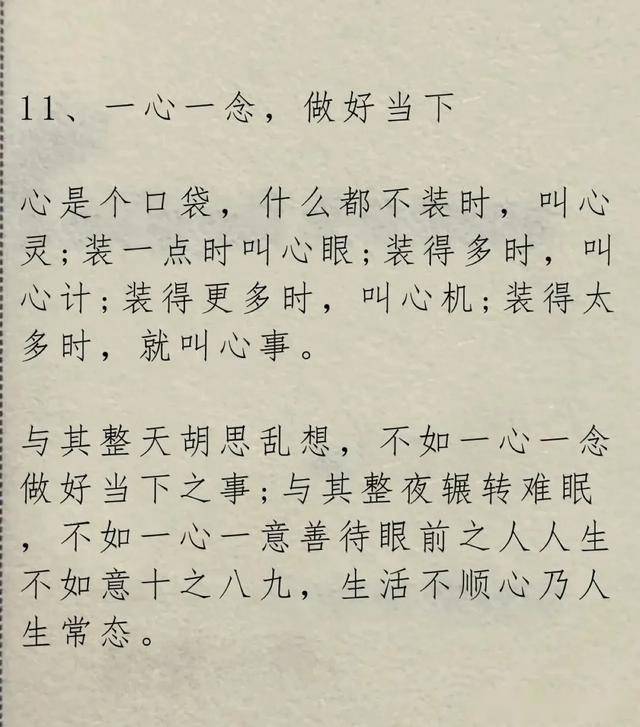 11、一心一念，做好当下
心是个口袋，什么都不装时，叫心
灵;装一点时叫心眼;装得多时，叫
心计;装得更多时，叫心机;装得太
多时，就叫心事。
与其整天胡思乱想，不如一心一念
做好当下之事;与其整夜辗转难眠
，不如一心一意善待眼前之人人生
不如意十之八九，生活不顺心乃人
生常态。